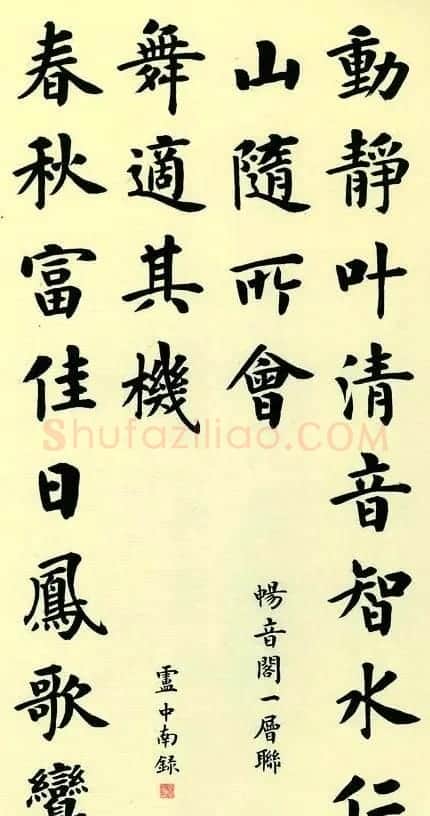 動靜叶清音智水仁
山隨所會
暢音閣一層聯
春秋富佳日鳳歌鸞
舞適其機
盧中南録
Shufaziliao.COM